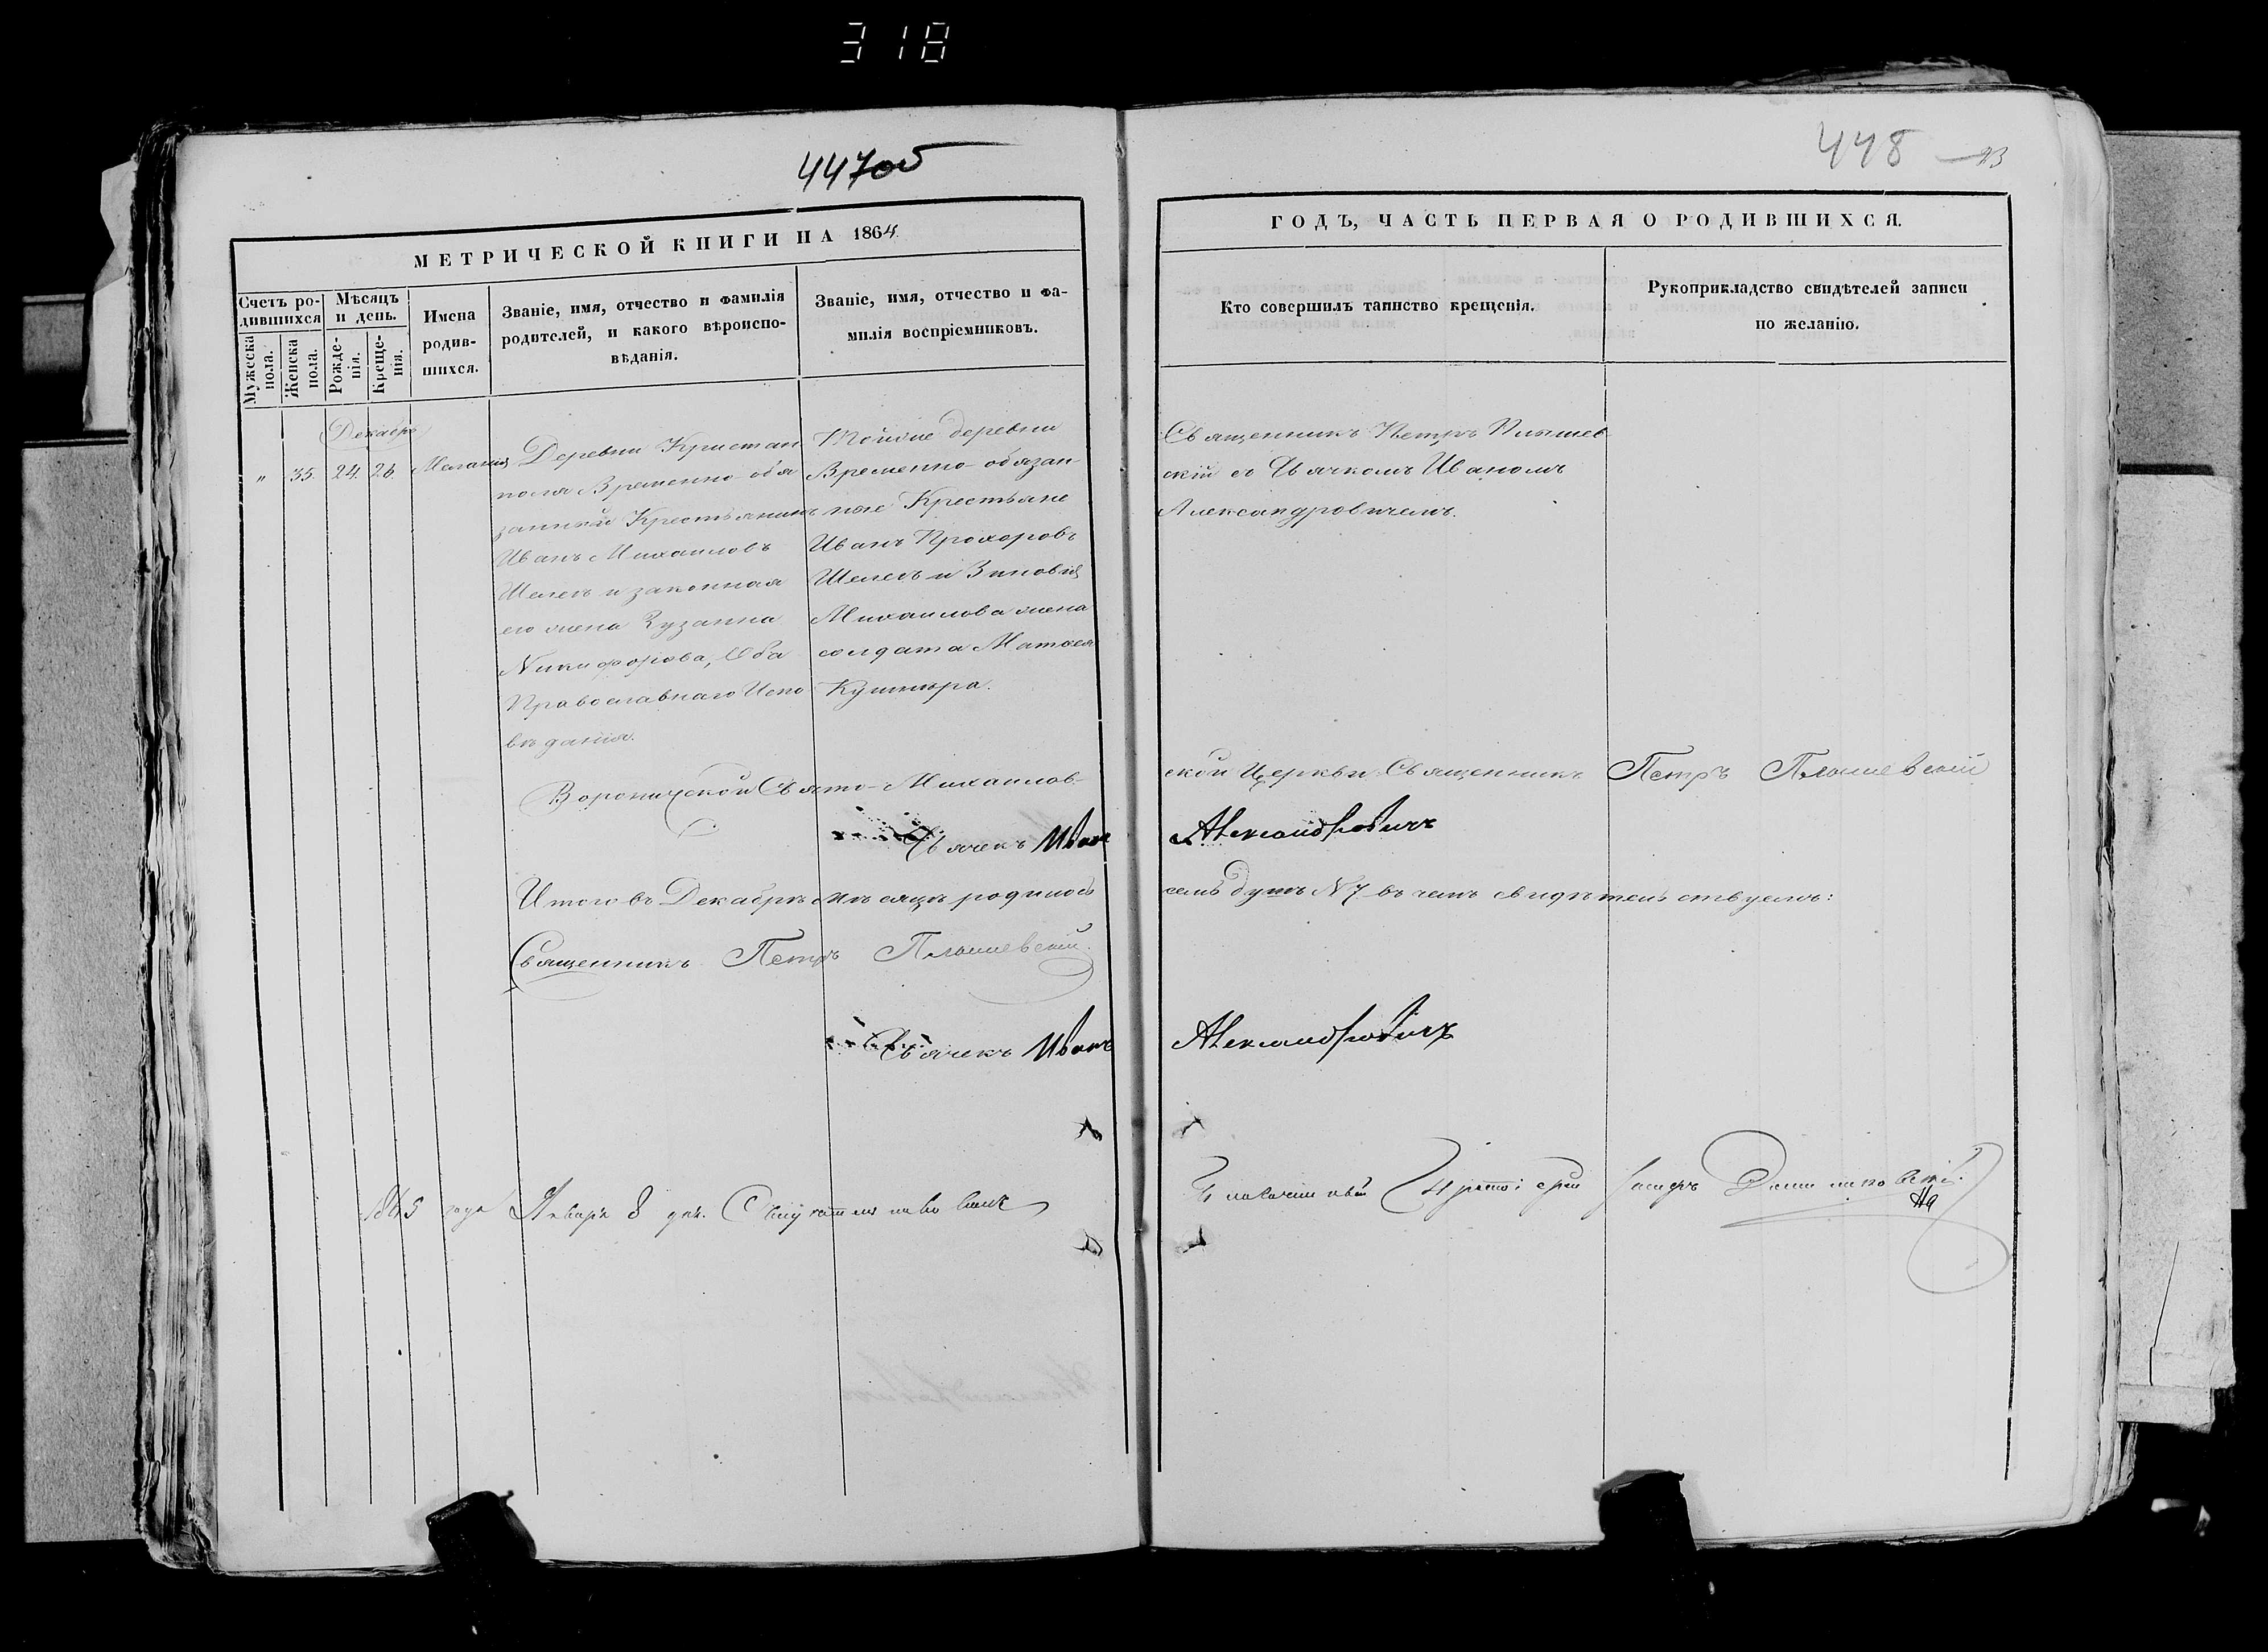 318
447об
448
23
МЕТРИЧЕСКОЙ КНИГИ НА 1864
ГОДЪ, ЧАСТЬ ПЕРВАЯ О РОДИВШИХСЯ.
Счетъ ро-
дившихся
Мужеска пола.
Женска пола.
Мѣсяцъ
и день.
Рожде-
нія.
Креще-
нія.
Имена
родив-
шихся.
Званіе, имя, отчество и фамилія
родителей, и какого вѣроиспо-
вѣданія.
Званіе, имя, отчество и фа-
милія воспріемниковъ.
Кто совершилъ таинство крещенія.
Рукоприкладство свидѣтелей записи
по желанію.
Декабрь
" 35. 24. 26. Меланія
Деревни Кристан
поля Временно-обя
занный Крестьянинъ
Иванъ Михаиловъ
Шелегъ и законная
его жена Зузанна
Никифорова, Оба
Православнаго Испо
вѣданія.
Тойже деревни
Временно-обязан-
ные Крестьяне
Иванъ Прохоровъ
Шелегъ и Зиновія
Михаилова жена
солдата Матвея
Священникъ Петръ Плышев
скій съ Дьячкомъ Иваномъ
Александровичемъ.
Вороничской Свято-Михаилов-
ской Церкви Священникъ Петръ Плышевскій
Дьячекъ Иванъ Александровичъ
Итого въ Декабрѣ мѣсяцѣ родилось семь душъ №7 въ чемъ свидѣтельствуемъ:
Священникъ Петръ Плышевскій.
Дьячекъ Иванъ Александровичъ
1865 года Января 8 дня.